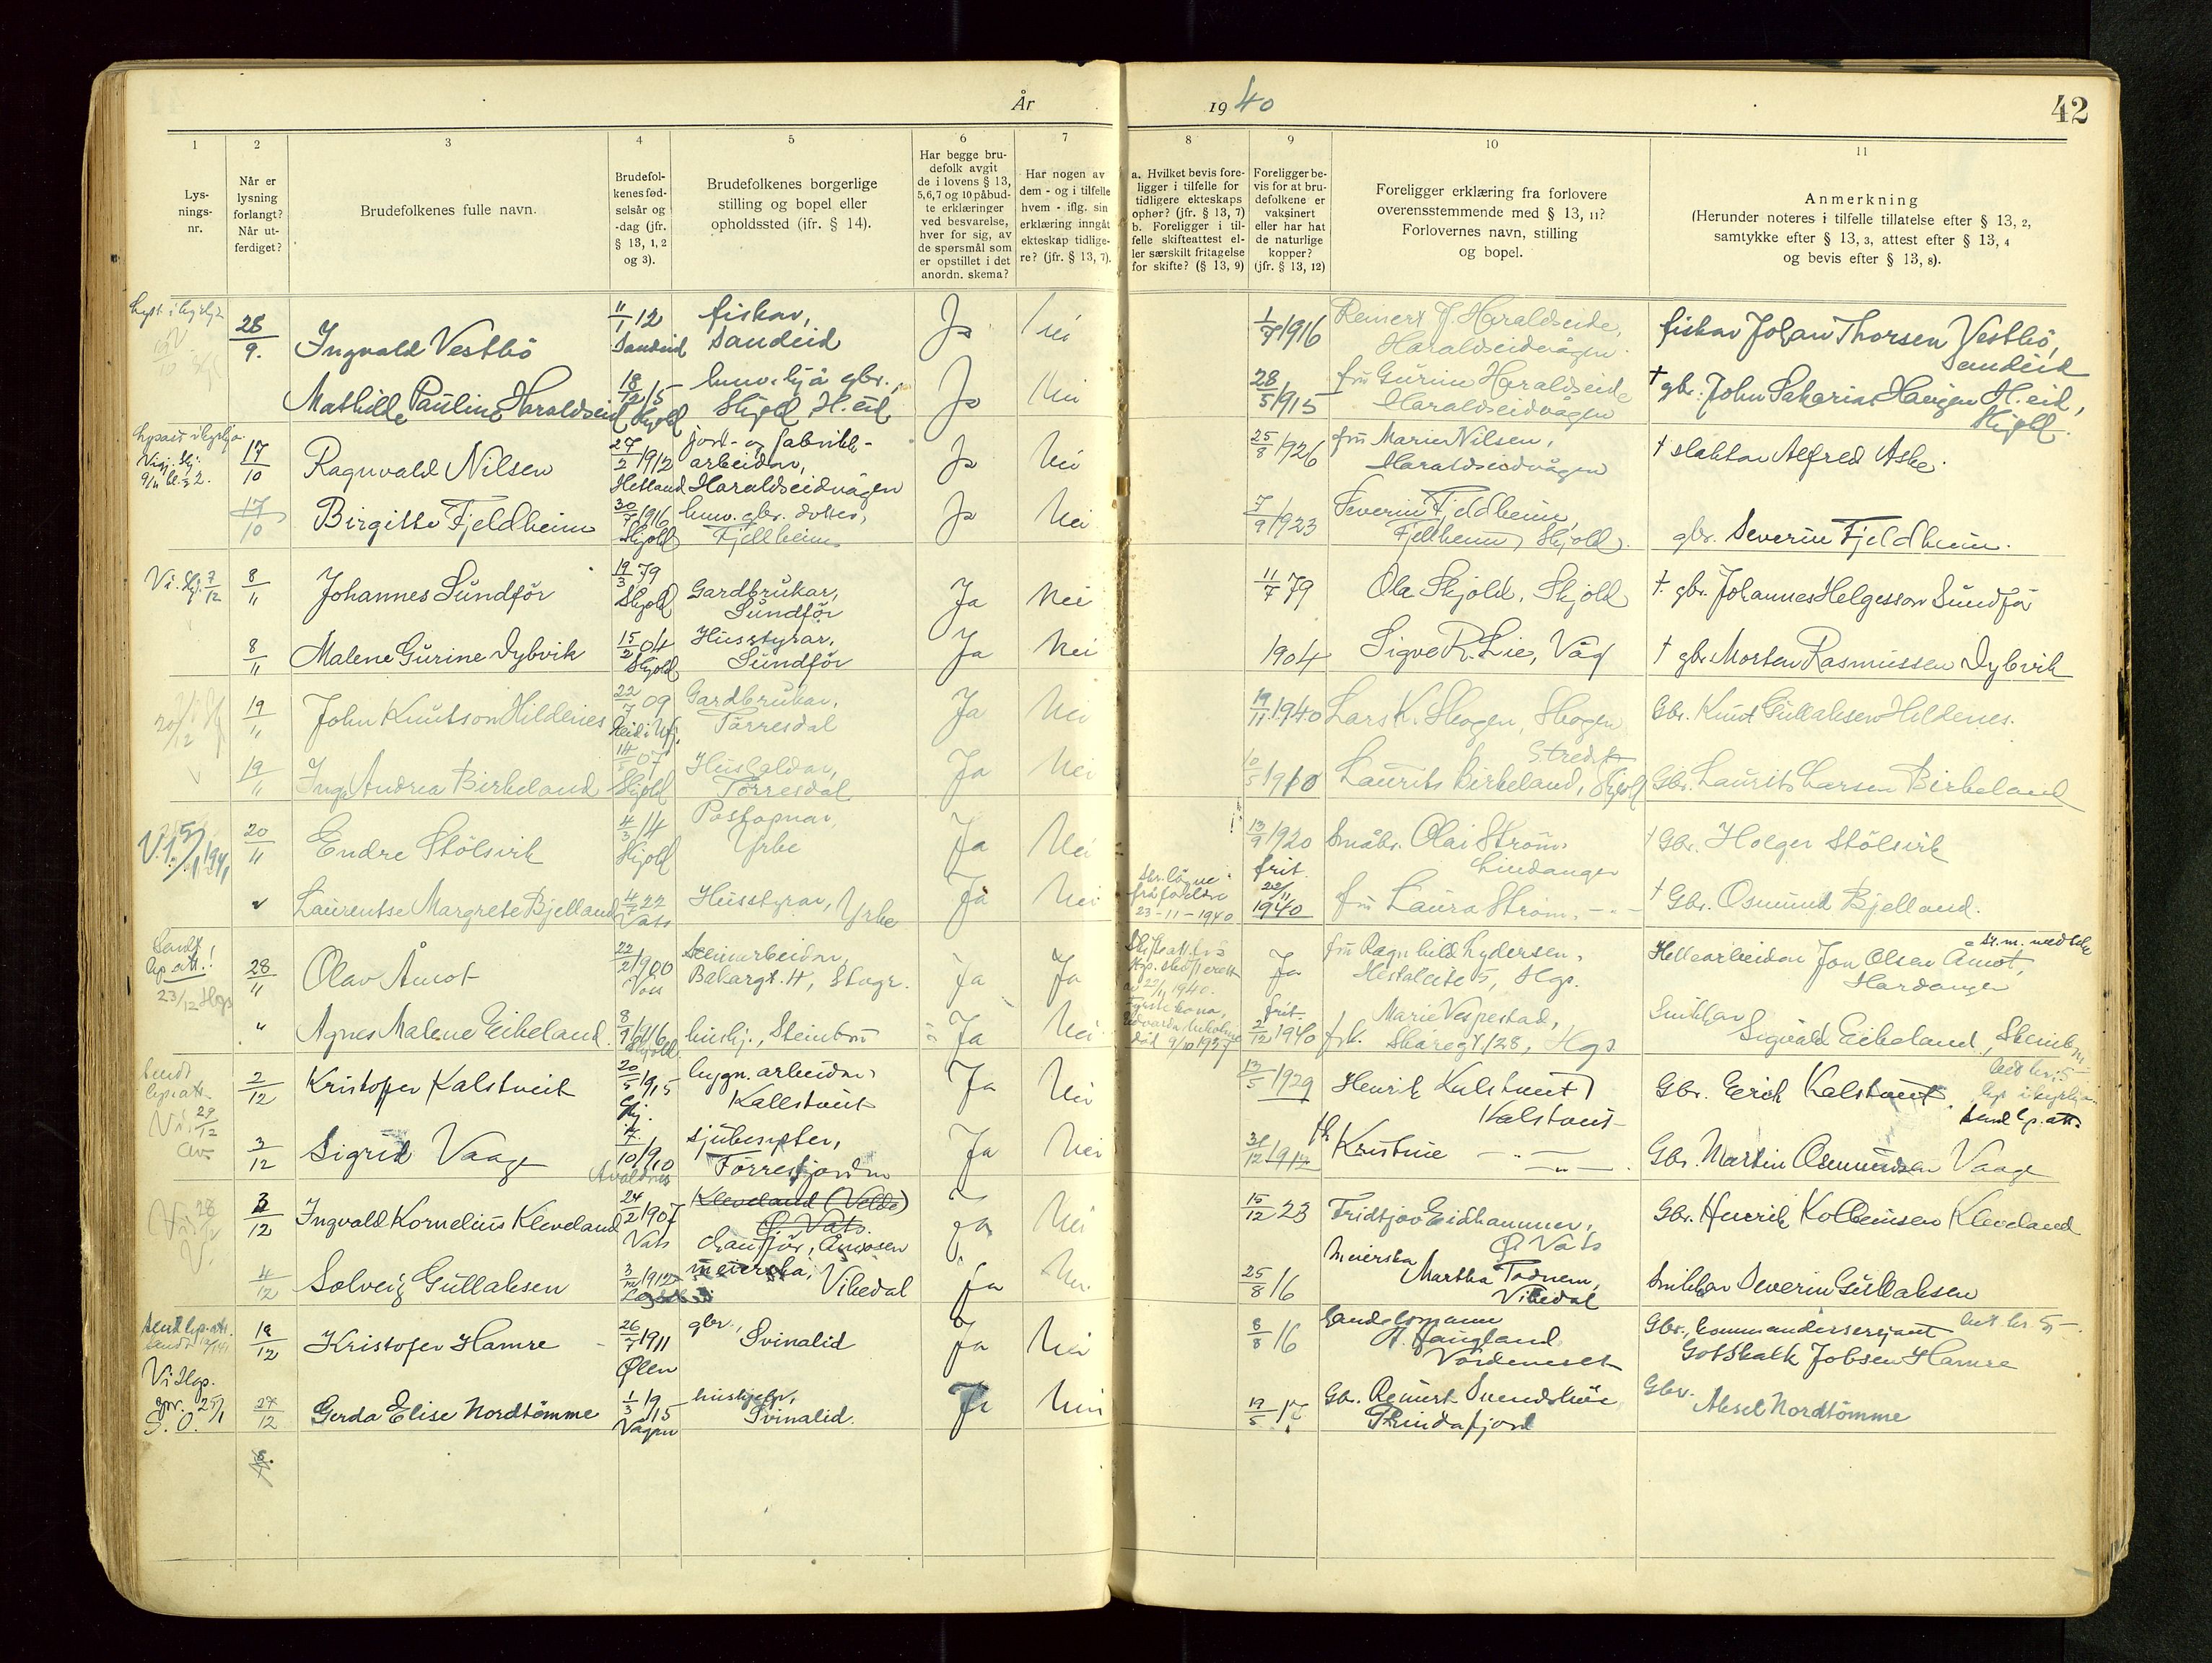 År 1940
42
1
Lys-
nings-
nr.
2
Når er
lysning
forlangt?
Når ut-
ferdiget?
3
Brudefolkenes fulle navn.
4
Brudefol-
kenes fød-
selsår og
-dag (jfr.
§ 13, 1, 2
og 3).
5
Brudefolkenes borgerlige
stilling og bopel eller
opholdssted (jfr. § 14).
6
Har begge bru-
defolk avgit
de i lovens § 13,
5,6,7 og 10 påbud-
te erklæringer
ved besvarelse,
hver for sig, av
de spørsmål som
er opstillet i det
anordn. skema?
7
Har nogen av
dem - og i tilfelle
hvem - iflg. sin
erklæring inngåt
ekteskap tidlige-
re? (jfr. § 13, 7).
8
a. Hvilket bevis fore-
ligger i tilfelle for
tidligere ekteskaps
ophør? (jfr. § 13, 7)
b. Foreligger i til-
felle skifteattest el-
ler særskilt fritagelse
for skifte? (§ 13, 9)
9
Foreligger be-
vis for at bru-
defolkene er
vaksinert
eller har hat
de naturlige
kopper?
(jfr. § 13, 12)
10
Foreligger erklæring fra forlovere
overensstemmende med § 13, 11?
Forlovernes navn, stilling
og bopel.
11
Anmerkning
(Herunder noteres i tilfelle tillatelse efter § 13, 2,
samtykke efter § 13, 3, attest efter § 13, 4
og bevis efter § 13, 8).
28/9. Ingvald Vestbö 11/1 12 Sandeid fiskar, Sandeid Ja Nei 1/7 1916 Reinert J. Haraldseide, Haraldseidvågen. fiskar Johan Thorsen Vestbö, Sandeid
Mathilde Pauline Haraldseid 18/12 15 Skjold husv. hjå gbr. Skjold H.eid Ja Nei 28/5 1915 fru Gurine Haraldseide Haraldseidvågen † gbr. John Sakarias Haugen H.eid, Skjold.
17/10 Ragnvald Nilsen 27/2 1912 Hetland jord- og fabrikk-arbeidar, Haraldseidvågen Ja Nei 25/8 1926 fru Marie Nilsen, Haraldseidvågen † slaktar Alfred Aske.
17/10 Birgitte Fjeldheim 30/7 1916 Skjold husv. gbr. dotter, Fjellheim Ja Nei 7/9 1923 Severin Fjeldheim, Fjellheim, Skjold. gbr. Severin Fjeldheim.
Vi. Skj. 7/12 8/11 Johannes Sundför 19/3 79 Skjold Gardbrukar, Sundför Ja Nei 11/7 79 Ola Skjold, Skjold †. gbr. Johannes Helgesson Sundför
8/11 Malene Gurine Dybvik 15/2 04 Skjold Husstyrar, Sundför Ja Nei 1904 Sigve R. Lie, Våg † gbr. Morten Rasmussen Dybvik
20/12 19/11 John Knutson Hildenes 22/7 09 Gardbrukar, Törresdal Ja Nei 19/11 1940 Lars K. Skogen, Skogen Gbr. Knut Gullaksen Hildenes.
19/11 Inga Andrea Birkeland 14/5 07 Skjold Hushaldar, Törresdal Ja Nei 10/5 1910 Laurits Birkeland, Skjold Gbr. Laurits Larsen Birkeland
20/11 Endre Stölsvik 4/3 14 Skjold Postopnar, Yrke Ja Nei 13/9 1920 Småbr. Olai Ström, Lindanger † Gbr. Holger Stölsvik
" Laurentse Margrete Bjelland 4/5 22 Vats Husstyrar, Yrke Ja Nei 23-11-1940 frit. 22/11 1940 fru Laura Ström, -"- † Gbr. Osmund Bjelland.
23/12 Hgs 28/11 Olav Åmot 22/2 1900 Voss Steinarbeidar, Bakargt. 4, Ja Ja Ja fru Ragnhild Lydersen, 5, Hgs. Hellearbeidar Jon Olsen Åmot, Hardanger
" Agnes Malene Eikeland 8/9 1916 Skjold hushj., Steinbru Ja Nei død 9/10 1937 frit. 2/12 1940 frk. Marie Vespestad, Skåregt 128, Hgs. Smikkar Sigvald Eikeland, Steinbru
Vi. 29/12 2/12 Kristoffer Kalstveit 20/5 1915 Skj. bygn. arbeidar, Kallstveit Ja Nei 13/5 1929 Henrik Kalstveit, Kalstveit Gbr. Erik Kalstveit. Send lp. att.
3/12 Sigrid Vaage 10/9 10 Avaldsnes sjukesyster, Förresfjorden Ja Nei 31/12 Kristine -"- -"-. Gbr. Martin Osmundsen Vaage
3/12 Ingvald Kornelius Kleveland 24/2 1907 Vats Kleveland (Velde) Ö. Vats. chauffør, Åmosen Ja Nei 15/12 23 Fridtjov Eidhammer, Ö. Vats Gbr. Henrik Kolbeinsen Kleveland
4/12 Solveig Gullaksen meierska, Vikedal Ja Nei 25/8 16 Meierska Martha Tednem, Vikedal Smikkar Severin Gullaksen
Vi Hgs. 19/12 Kristofer Hamre 26/7 1911 Ølen gbr., Svinalid Ja Nei 8/8 16 handelsmann A. Haugland Vårdeneset Gbr., kommandersersjant Gotskalk Jobsen Hamre
27/12 Gerda Elise Nordtömme 1/3 1915 Vågen hushjelp, Svinalid. Ja Nei 19/5 17 Gbr. Reinert Svendsböe Grindafjord Gbr. Aksel Nordtömme